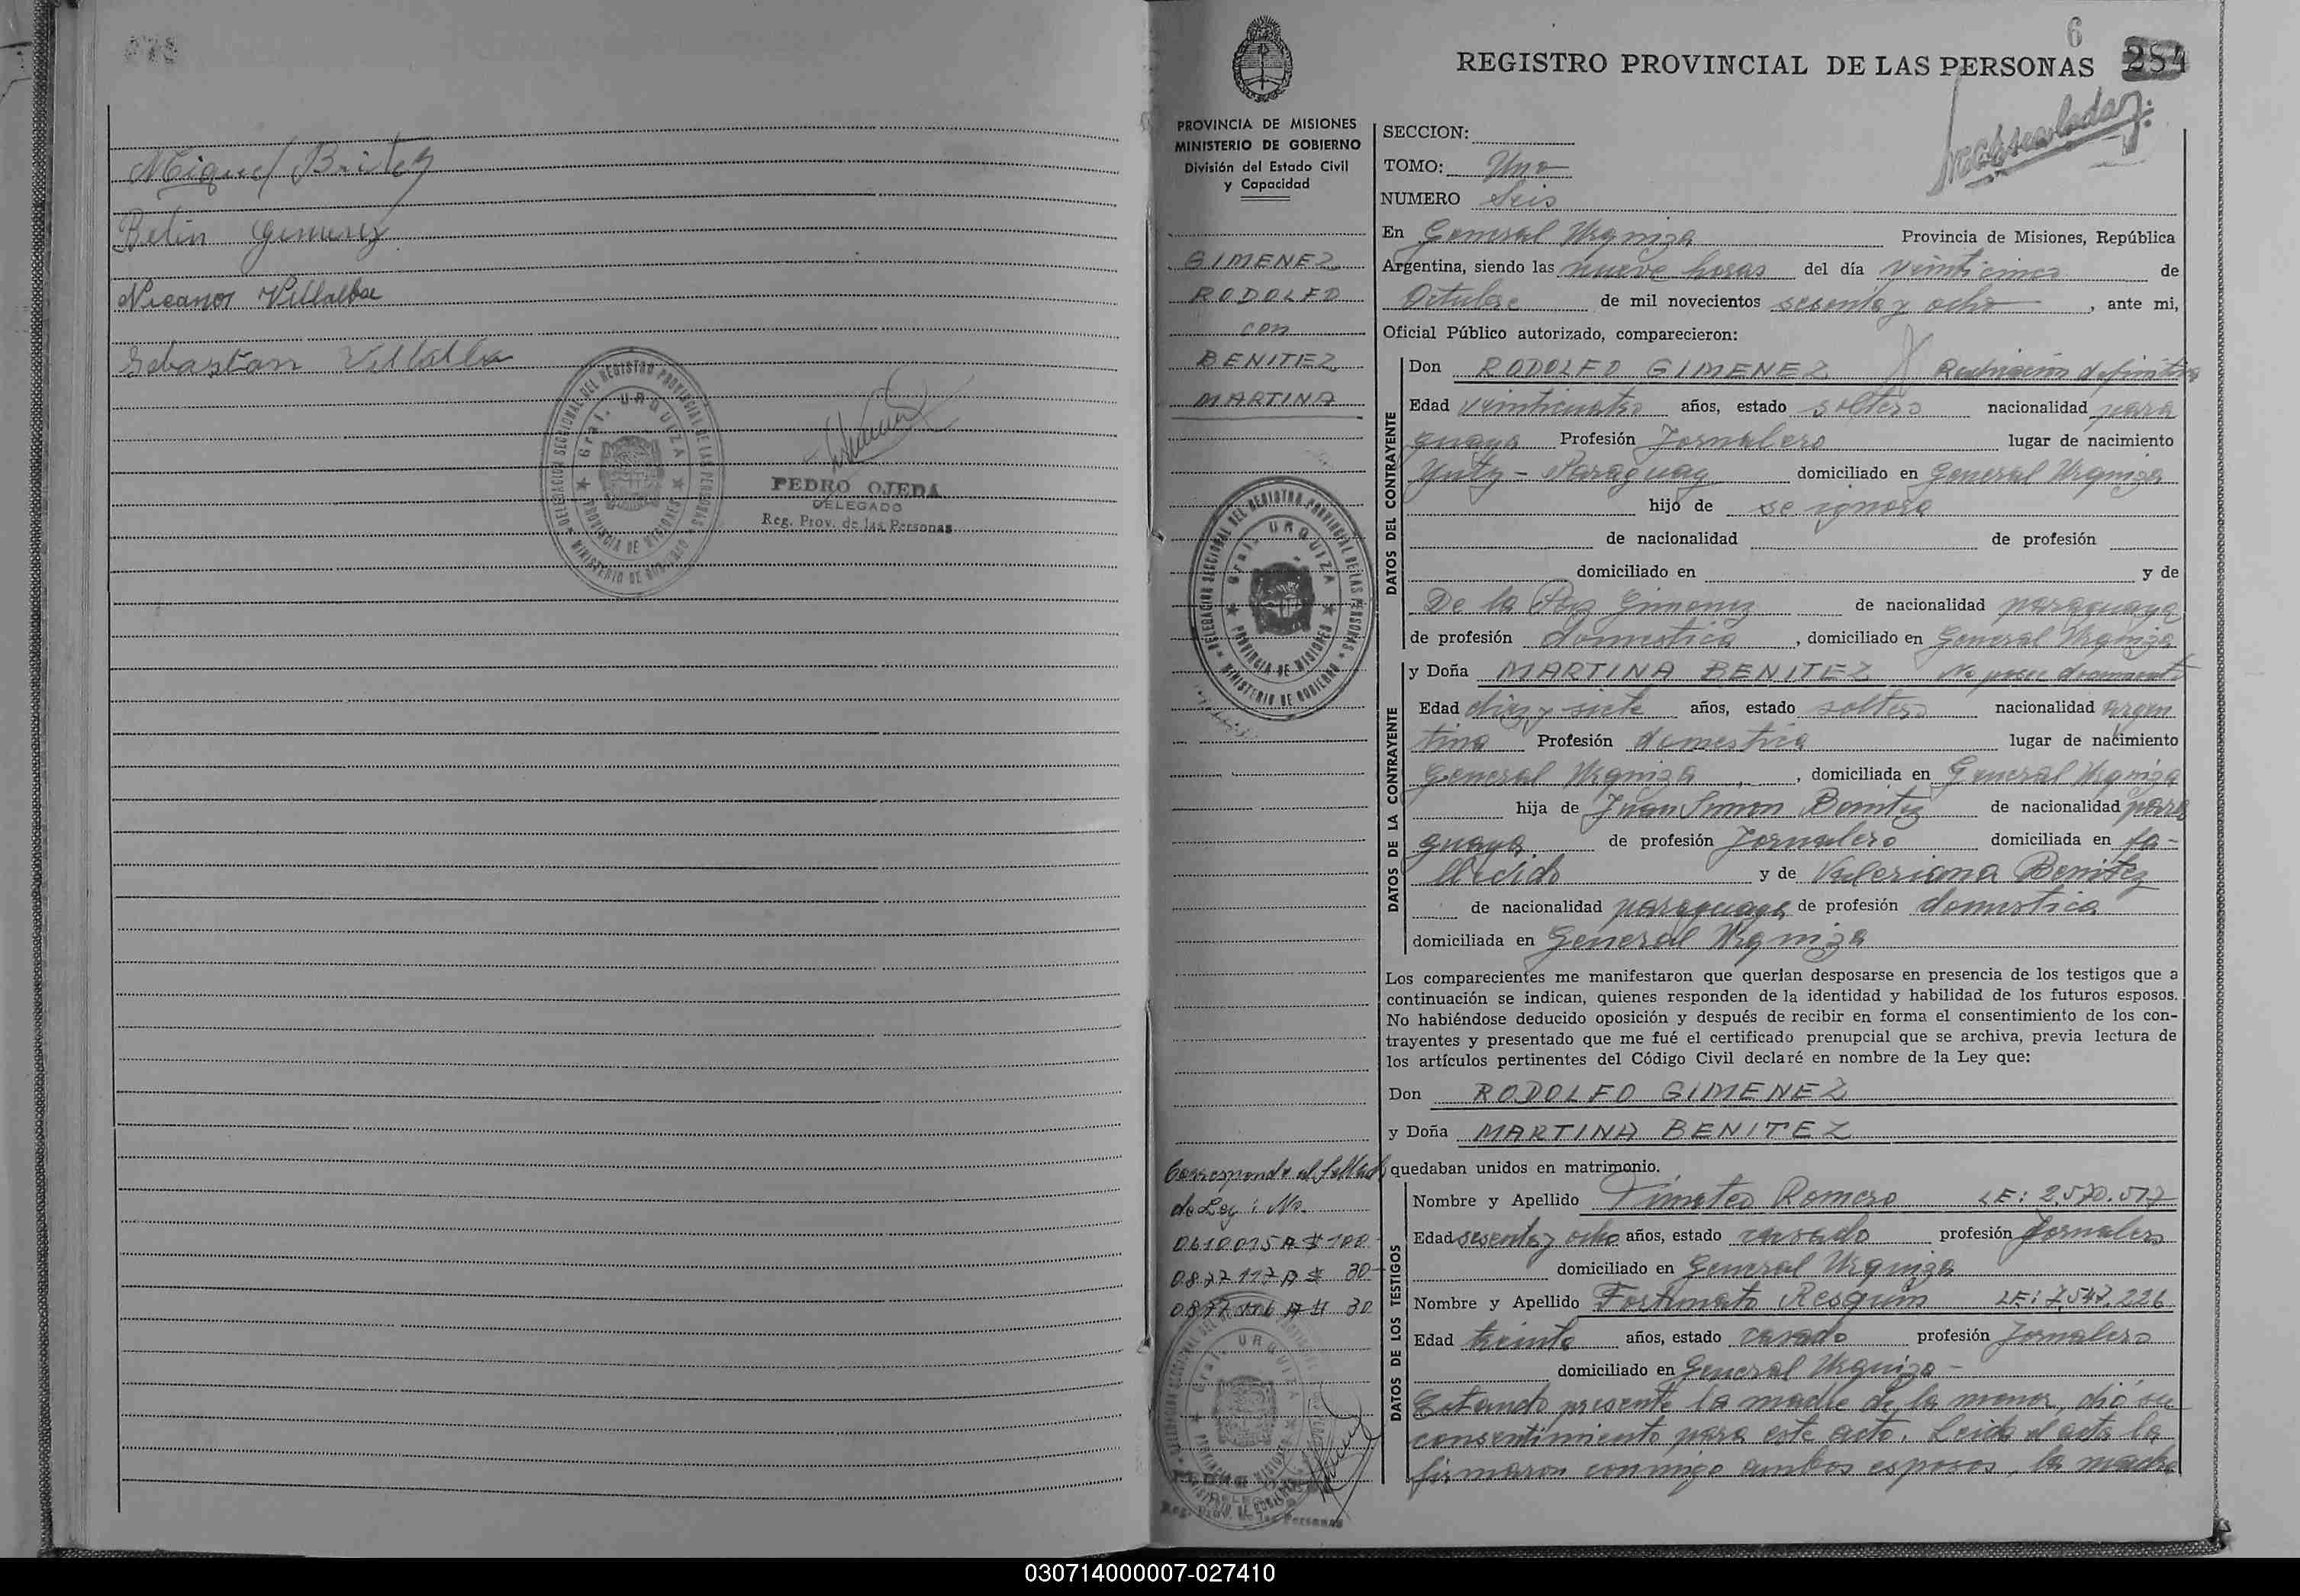 Miguel Britez
Belin Gimenez
Nicanor Villalba
Sebastian Villalba
DELEGACION SECCIONAL DEL REGISTRO PROVINCIAL DE LAS PERSONAS
Gral. URQUIZA
PROVINCIA DE MISIONES
MINISTERIO DE GOBIERNO
PEDRO OJEDA
DELEGADO
Reg. Prov. de las Personas
6
REGISTRO PROVINCIAL DE LAS PERSONAS 284
PROVINCIA DE MISIONES
MINISTERIO DE GOBIERNO
División del Estado Civil
y Capacidad
GIMENEZ
RODOLFO
con
BENITEZ
MARTINA
DELEGACION SECCIONAL DEL REGISTRO PROVINCIAL DE LAS PERSONAS
Gral. URQUIZA
PROVINCIA DE MISIONES
MINISTERIO DE GOBIERNO
Corresponde al sellado
de Ley : No.
0610015 A $ 100
0877117 A $ 30
0877 A $ 30
Gral. URQUIZA
Reg. Prov. de las Personas
SECCION:
TOMO: Uno
NUMERO Seis
En General Urquiza Provincia de Misiones, República
Argentina, siendo las nueve horas del día veinticinco de
Octubre de mil novecientos sesenta y ocho , ante mi,
Oficial Público autorizado, comparecieron:
DATOS DEL CONTRAYENTE
Don RODOLFO GIMENEZ Radicación definitiva
Edad veinticuatro años, estado soltero nacionalidad para
guaya Profesión Jornalero lugar de nacimiento
Yuty - Paraguay domiciliado en General Urquiza
hijo de se ignora
de nacionalidad de profesión
domiciliado en y de
De la Paz Gimenez de nacionalidad paraguaya
de profesión domestica , domiciliado en General Urquiza
DATOS DE LA CONTRAYENTE
y Doña MARTINA BENITEZ No posee documento
Edad diez y siete años, estado soltera nacionalidad argen
tina Profesión domestica lugar de nacimiento
General Urquiza , domiciliada en General Urquiza
hija de Juan Simon Benitez de nacionalidad para
guaya de profesión Jornalero domiciliada en fa-
llecido y de Valeriana Benitez
de nacionalidad paraguaya de profesión domestica
domiciliada en General Urquiza
Los comparecientes me manifestaron que querían desposarse en presencia de los testigos que a
continuación se indican, quienes responden de la identidad y habilidad de los futuros esposos.
No habiéndose deducido oposición y después de recibir en forma el consentimiento de los con-
trayentes y presentado que me fué el certificado prenupcial que se archiva, previa lectura de
los artículos pertinentes del Código Civil declaré en nombre de la Ley que:
Don RODOLFO GIMENEZ
y Doña MARTINA BENITEZ
quedaban unidos en matrimonio.
DATOS DE LOS TESTIGOS
Nombre y Apellido Timoteo Romero LE: 2,570.517
Edad sesenta y ocho años, estado casado profesión Jornalero
domiciliado en General Urquiza
Nombre y Apellido Fortunato Resquin LE: 7,547.226
Edad treinta años, estado casado profesión Jornalero
domiciliado en General Urquiza -
Estando presente la madre de la menor, dió su
consentimiento para este acto. Leida el acta la
firmaron conmigo ambos esposos, la madre
030714000007-027410